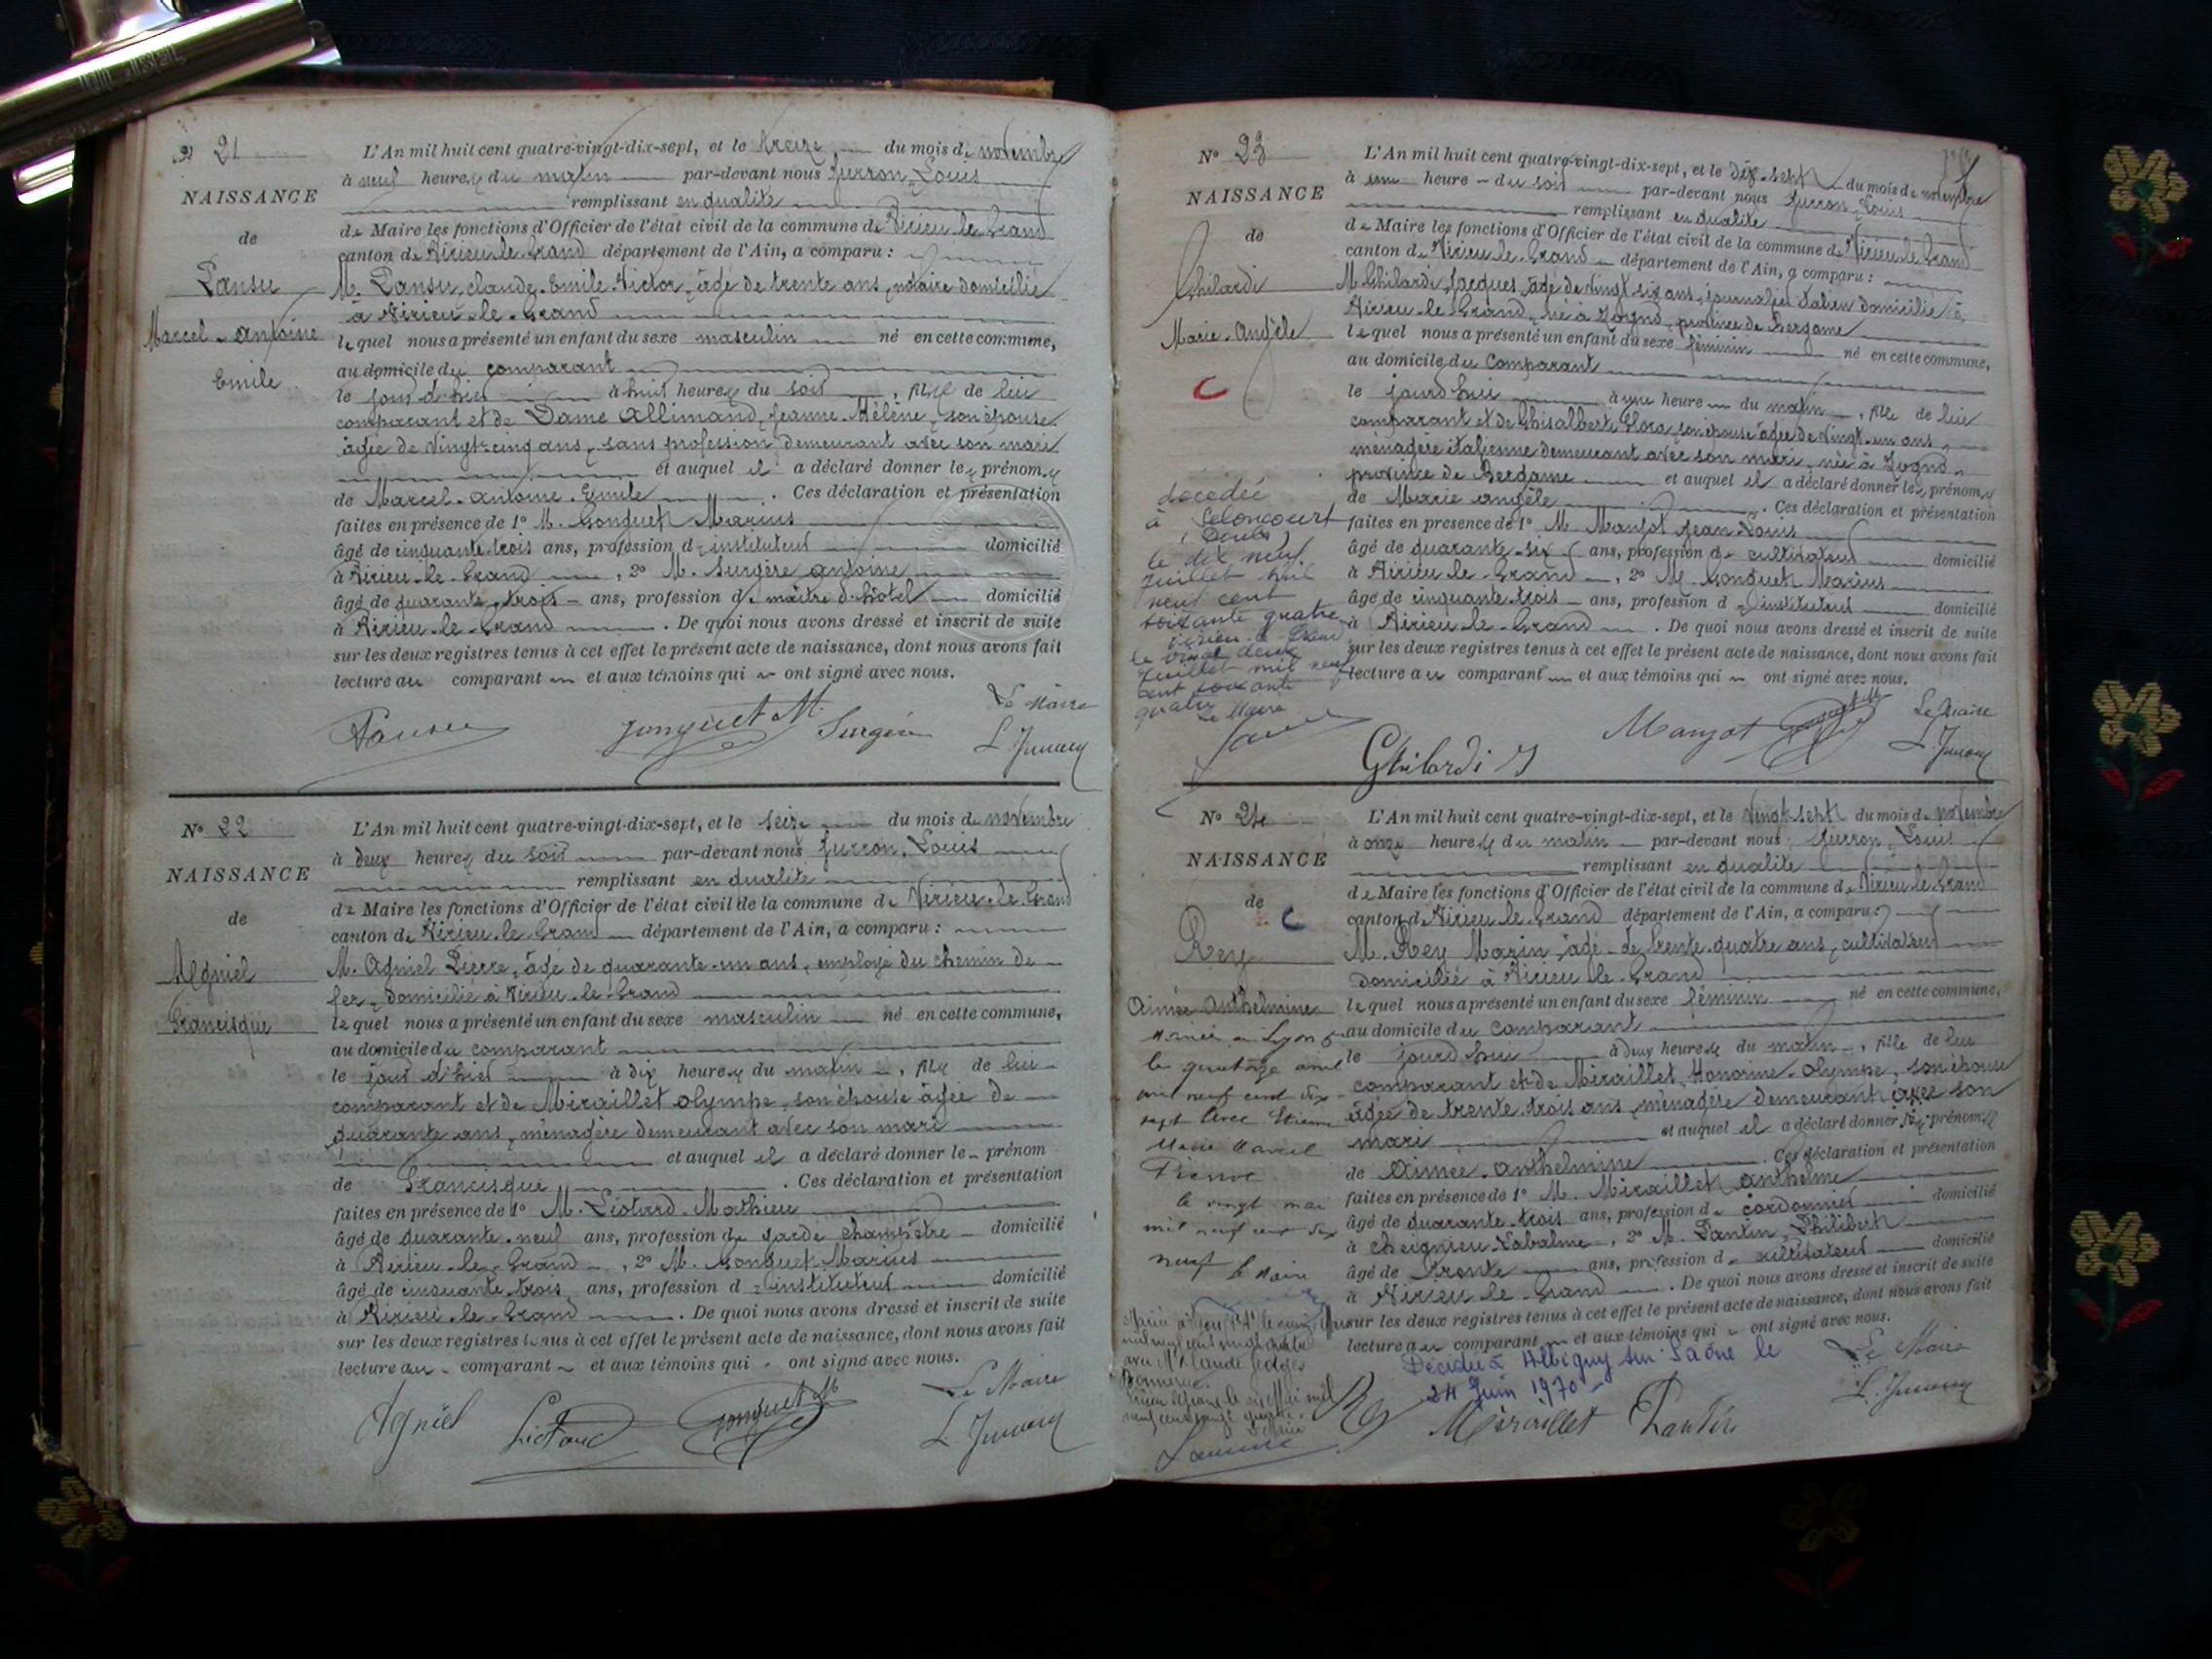 21
NAISSANCE
de
Pansu
Marcel-Antoine
Emile
L'An mil huit cent quatre-vingt-dix-sept, et le treize du mois de novembre
à neuf heures du matin par-devant nous Jurron, Louis
remplissant en qualité
de Maire les fonctions d'Officier de l'état civil de la commune de Virieu-le-Grand
canton de Virieu-le-Grand département de l'Ain, a comparu :
M. Pansu, Claude-Emile-Victor, âgé de trente ans, notaire domicilié
à Virieu-le-Grand
lequel nous a présenté un enfant du sexe masculin né en cette commune,
au domicile du comparant
le jour d'hier à huit heures du soir, fils de lui
comparant et de Dame Allimand, Jeanne-Hélène, son épouse
âgée de vingt-cinq ans, sans profession demeurant avec son mari
et auquel il a déclaré donner les prénoms
de Marcel-Antoine-Emile. Ces déclaration et présentation
faites en présence de 1° M. Gonguet Marius
âgé de cinquante-trois ans, profession d'instituteur domicilié
à Virieu-le-Grand, 2° M. Surgère Antoine
âgé de quarante-trois ans, profession de maître d'hôtel domicilié
à Virieu-le-Grand. De quoi nous avons dressé et inscrit de suite
sur les deux registres tenus à cet effet le présent acte de naissance, dont nous avons fait
lecture au comparant et aux témoins qui ont signé avec nous.
Le Maire
Pansu Gonguet M. Surgère
N° 22
NAISSANCE
de
Agniel
Francisque
L'An mil huit cent quatre-vingt-dix-sept, et le seize du mois de novembre
à deux heures du soir par-devant nous Jurron, Louis
remplissant en qualité
de Maire les fonctions d'Officier de l'état civil de la commune de Virieu-le-Grand
canton de Virieu-le-Grand département de l'Ain, a comparu :
M. Agniel Pierre, âgé de quarante-un ans, employé du chemin de
fer, domicilié à Virieu-le-Grand
lequel nous a présenté un enfant du sexe masculin né en cette commune,
au domicile du comparant
le jour d'hier à dix heures du matin, fils de lui
comparant et de Miraillet Olympe, son épouse âgée de
quarante ans, ménagère demeurant avec son mari
et auquel il a déclaré donner le prénom
de Francisque. Ces déclaration et présentation
faites en présence de 1° M. Liotard Mathieu
âgé de quarante-neuf ans, profession de garde champêtre domicilié
à Virieu-le-Grand, 2° M. Gonguet Marius
âgé de cinquante-trois ans, profession d'instituteur domicilié
à Virieu-le-Grand. De quoi nous avons dressé et inscrit de suite
sur les deux registres tenus à cet effet le présent acte de naissance, dont nous avons fait
lecture au comparant et aux témoins qui ont signé avec nous.
Le Maire
Agniel Liotard
N° 23
NAISSANCE
de
Ghilardi
Marie-Angèle
C
decedée
à Seloncourt
(Doubs)
le dix neuf
Juillet mil
neuf cent
soixante quatre
Virieu-le-Grand
le vingt deux
Juillet mil neuf
cent soixante
quatre
Le Maire
L'An mil huit cent quatre-vingt-dix-sept, et le dix-sept du mois de novembre
à une heure du soir par-devant nous Jurron, Louis
remplissant en qualité
de Maire les fonctions d'Officier de l'état civil de la commune de Virieu-le-Grand
canton de Virieu-le-Grand département de l'Ain, a comparu :
M. Ghilardi, Jacques, âgé de vingt-six ans, journalier italien domicilié à
Virieu-le-Grand, né à Zogno, province de Bergame
lequel nous a présenté un enfant du sexe féminin né en cette commune,
au domicile du comparant
le jourd'hui à une heure du matin, fille de lui
comparant et de Ghisalberti Flora, son épouse âgée de vingt-un ans,
ménagère italienne demeurant avec son mari, née à Zogno,
province de Bergame et auquel il a déclaré donner les prénoms
de Marie Angèle. Ces déclaration et présentation
faites en présence de 1° M. Manjot Jean-Louis
âgé de quarante-six ans, profession de cultivateur domicilié
à Virieu-le-Grand, 2° M. Gonguet Marius
âgé de cinquante-trois ans, profession d'instituteur domicilié
à Virieu-le-Grand. De quoi nous avons dressé et inscrit de suite
sur les deux registres tenus à cet effet le présent acte de naissance, dont nous avons fait
lecture au comparant et aux témoins qui ont signé avec nous.
Le Maire
Ghilardi J Manjot
N° 24
NAISSANCE
de
C
Rey
Aimée Anthelmine
Mariée à Lyon 6
le quatorze avril
mil neuf cent dix
sept avec Etienne
Marie Marcel
le vingt mai
mil neuf cent dix
neuf
Le Maire
L'An mil huit cent quatre-vingt-dix-sept, et le vingt-sept du mois de novembre
à onze heures du matin par-devant nous Jurron, Louis
remplissant en qualité
de Maire les fonctions d'Officier de l'état civil de la commune de Virieu-le-Grand
canton de Virieu-le-Grand département de l'Ain, a comparu :
M. Rey Marin, âgé de trente-quatre ans, cultivateur
domicilié à Virieu-le-Grand
lequel nous a présenté un enfant du sexe féminin né en cette commune,
au domicile du comparant
le jourd'hui à deux heures du matin, fille de lui
comparant et de Miraillet, Honorine-Olympe, son épouse
âgée de trente-trois ans, ménagère demeurant avec son
mari et auquel il a déclaré donner les prénoms
de Aimée-Anthelmine. Ces déclaration et présentation
faites en présence de 1° M. Miraillet Anthelme
âgé de quarante-trois ans, profession de cordonnier domicilié
à Cheignieu-Labalme, 2° M. Pantin, Philibert
âgé de trente ans, profession de cultivateur domicilié
à Virieu-le-Grand. De quoi nous avons dressé et inscrit de suite
sur les deux registres tenus à cet effet le présent acte de naissance, dont nous avons fait
lecture au comparant et aux témoins qui ont signé avec nous.
Décédée à Albigny sur Saône le
24 Juin 1970
Le Maire
Rey Miraillet Pantin